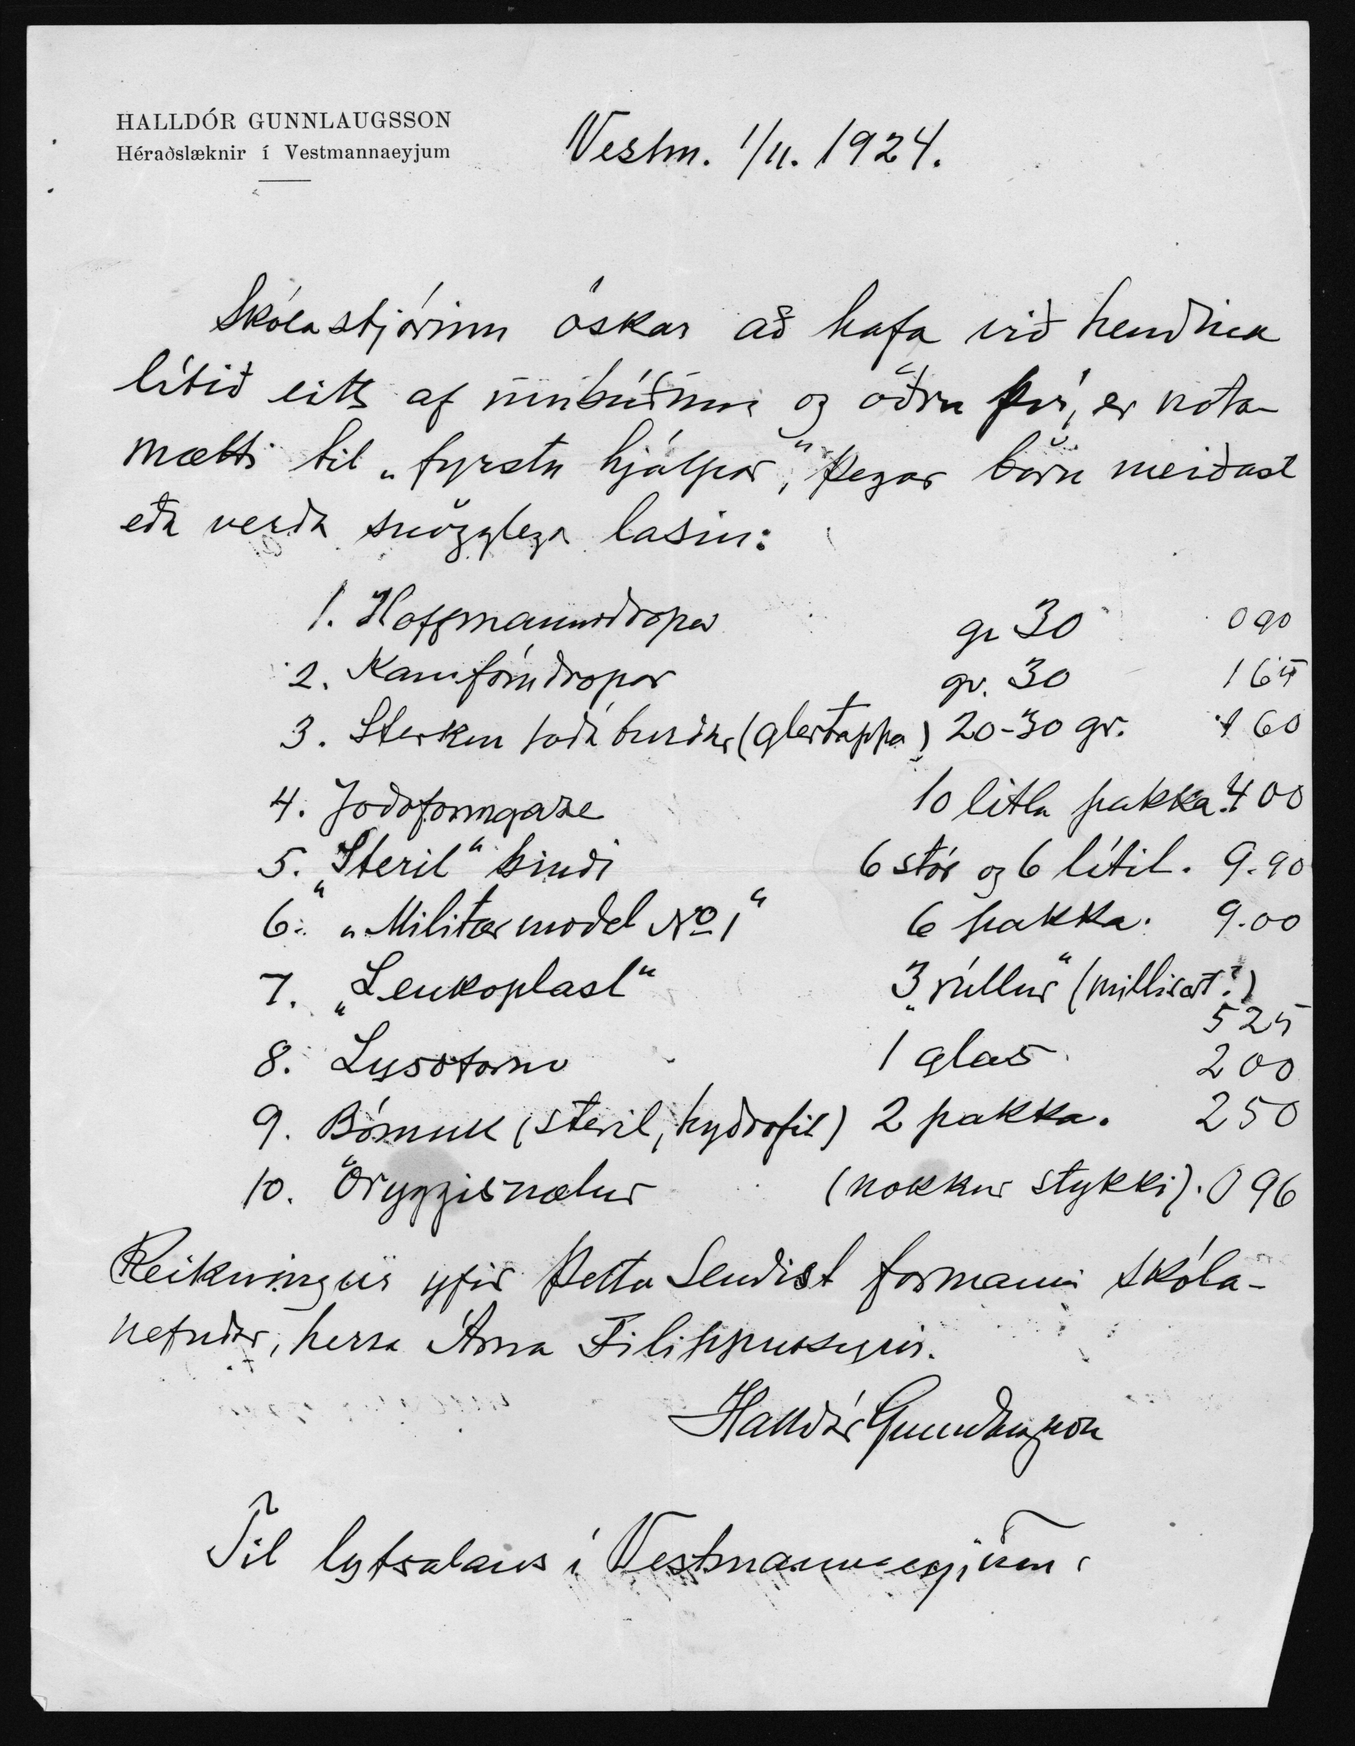 HALLDÓR GUNNLAUGSSON
Héraðslæknir í Vestmannaeyjum
Vestm. 1/11. 1924.
Skólastjórinn óskar að hafa við hendina
lítið eitt af umbúðum og öðru því, er nota
mætti til „fyrstu hjálpar", þegar börn meiðast
eða verða snögglega lasin:
1. Hoffmannsdropar gr 30 0 90
2. Kamfórudropar gr. 30 1 65
3. Sterken (glertappa) 20-30 gr. 1 60
4. Jodoformgaze 10 litla pakka. 4 00
5. „Steril" bindi 6 stór og 6 lítil. 9.90
6. „ „Militærmodel No 1" 6 pakka. 9.00
7. „Leukoplast" 3 „rúllur" (milliset?)
5 25
8. Lysoform 1 glas 2 00
9. Bómull (steril, hydrofil) 2 pakka. 2 50
10. Öryggisnælur (nokkur stykki). 0 96
Reikningur yfir þetta sendist formanni skóla-
nefndar, herra Árna Filippussyni.
Halldór Gunnlaugsson
Til lyfsalans í Vestmannaeyjum.